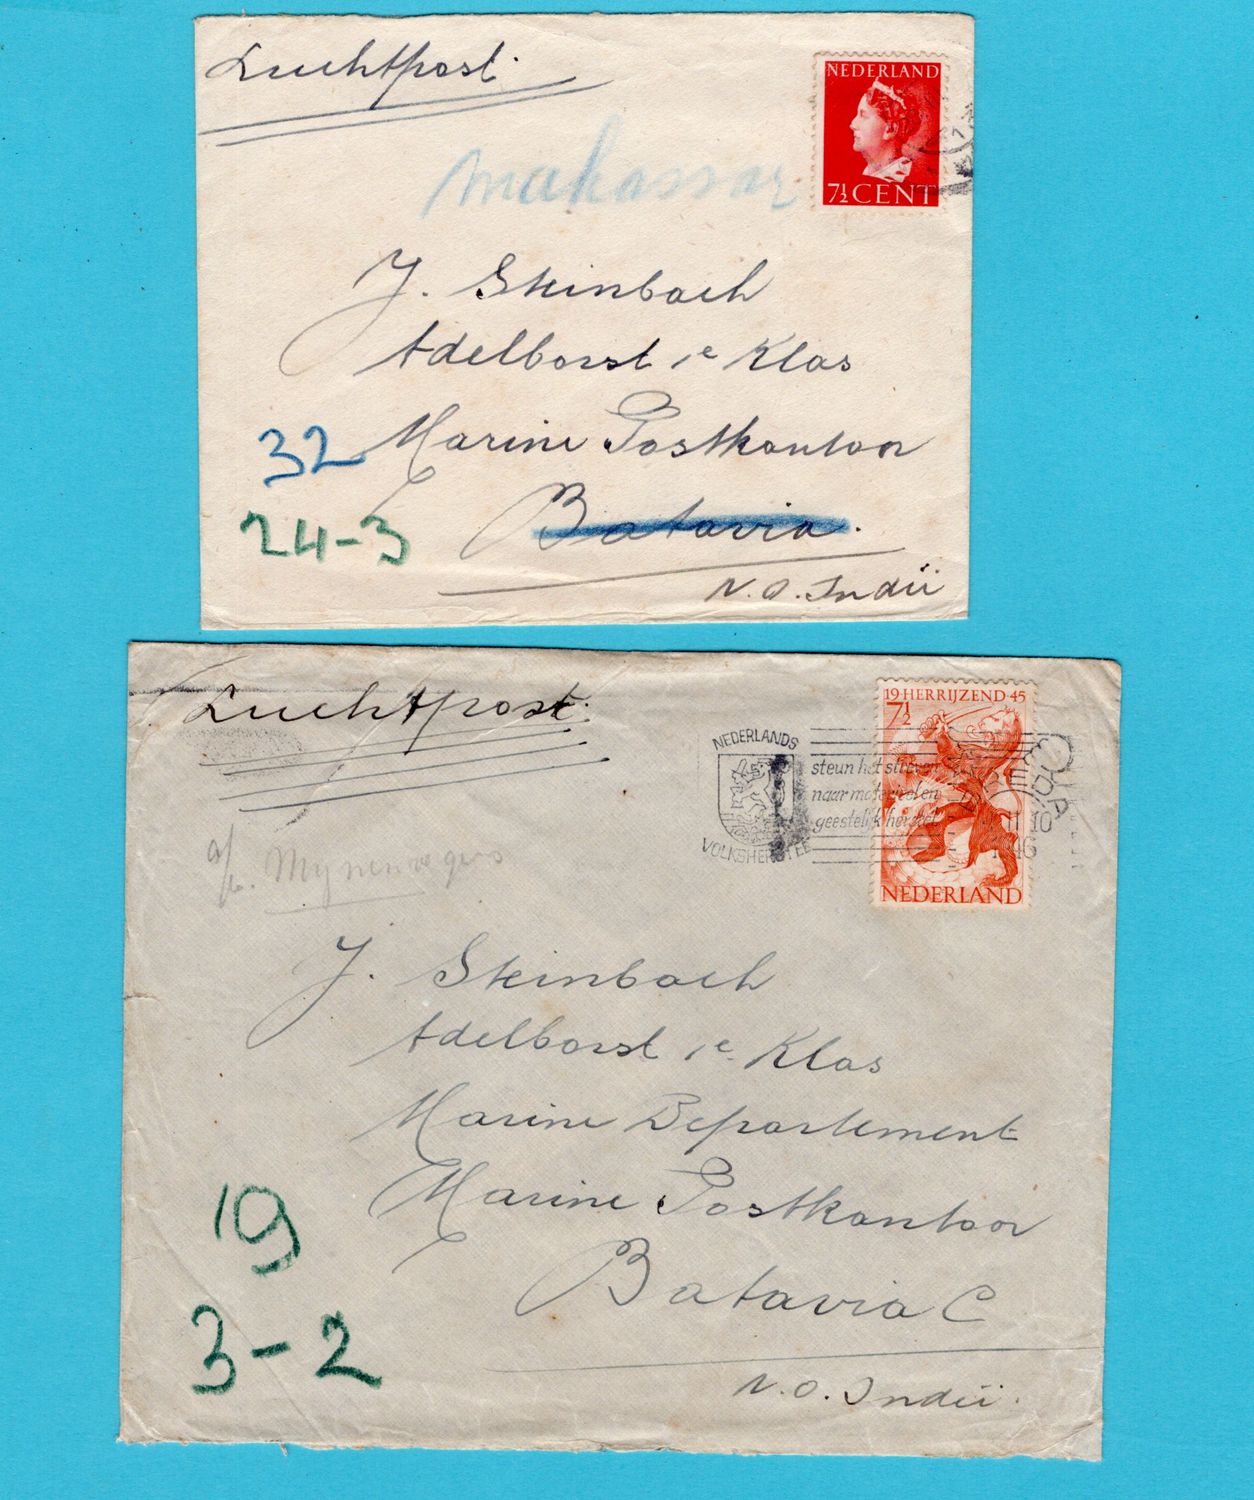 Luchtpost.
NEDERLAND
7½ CENT
makassar
J. Steinbach
Adelborst 1e Klas
Marine Postkantoor
32
Batavia.
24-3
N.O. Indië
Luchtpost.
19 HERRIJZEND 45
7½
NEDERLAND
NEDERLANDS
VOLKSHERSTEL
steun het streven
naar materieelen
geestelijk herstel
BREDA
II 10
1946
a/b. Mijnenvegers
J. Steinbach
Adelborst 1e Klas
Marine Departement
Marine Postkantoor
19
Batavia C
3-2
N.O. Indië.